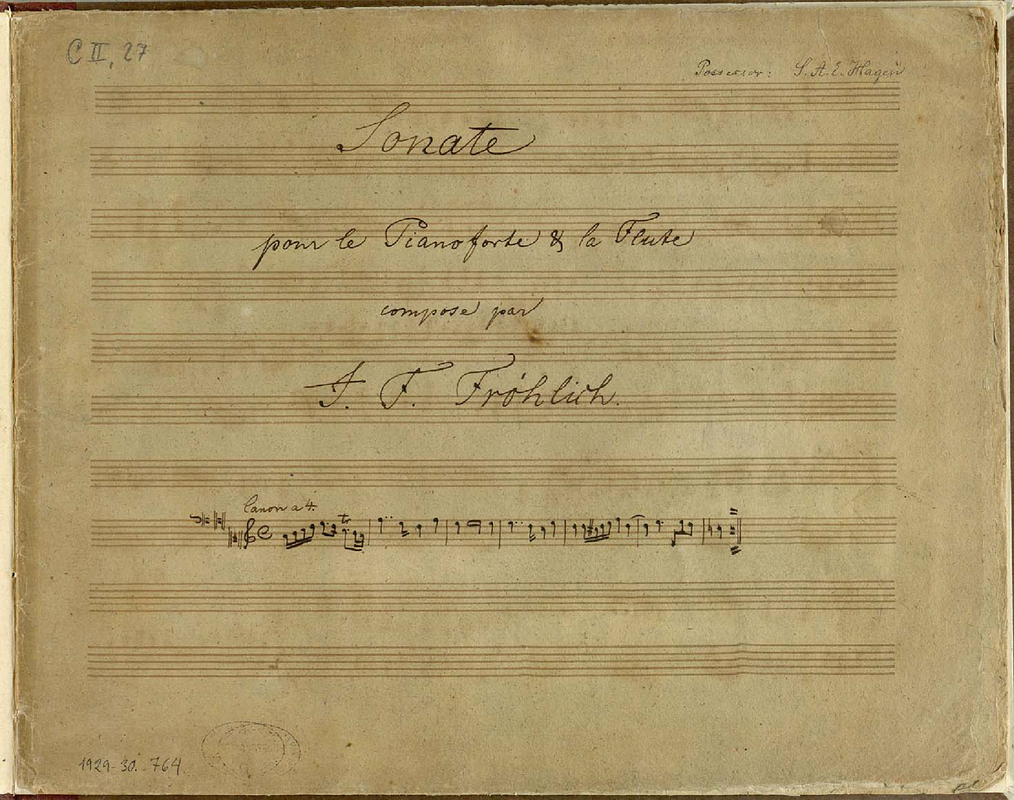 C II, 27
Possessor: S. A. E. Hagen
Sonate
pour le Pianoforte & la Flute
compose par
J. F. Fröhlich.
Canon a 4.
tr
1929-30. 764